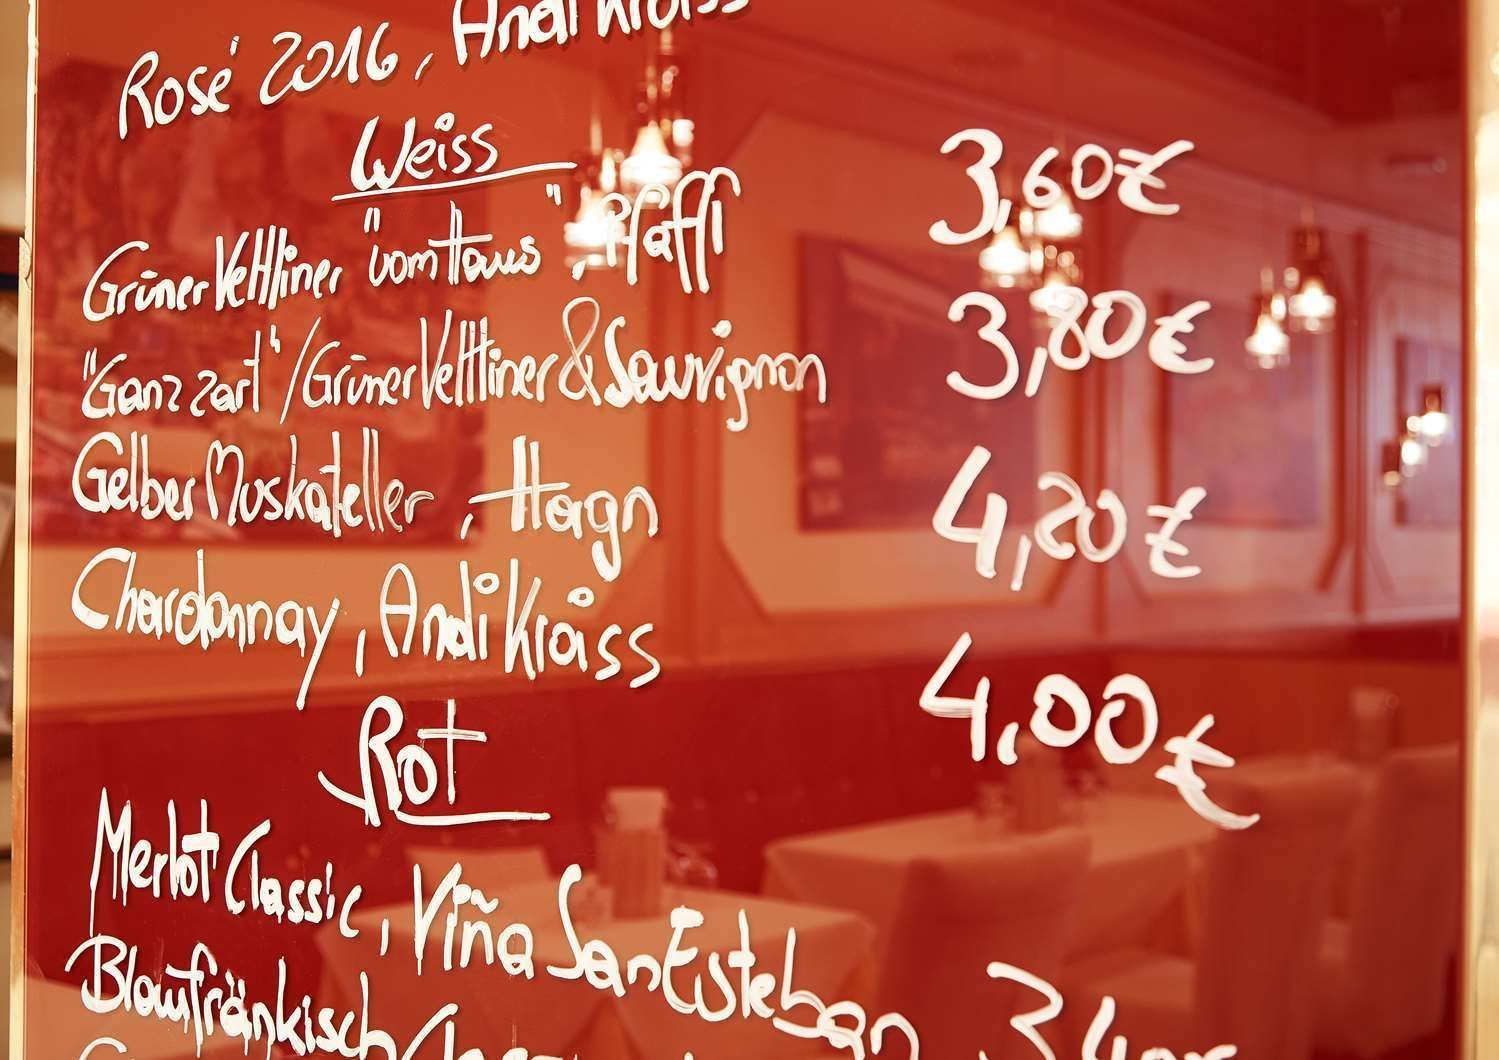 Rosé 2016, Andi Kroiss
Weiss
Grüner Veltliner "vom Haus", Pfaffl 3,60€
"Ganz zart"/Grüner Veltliner & Sauvignon 3,80€
Gelber Muskateller, Hagn 4,20€
Chardonnay, Andi Kroiss 4,00€
Rot
Merlot Classic, Viña San Esteban
Blaufränkisch